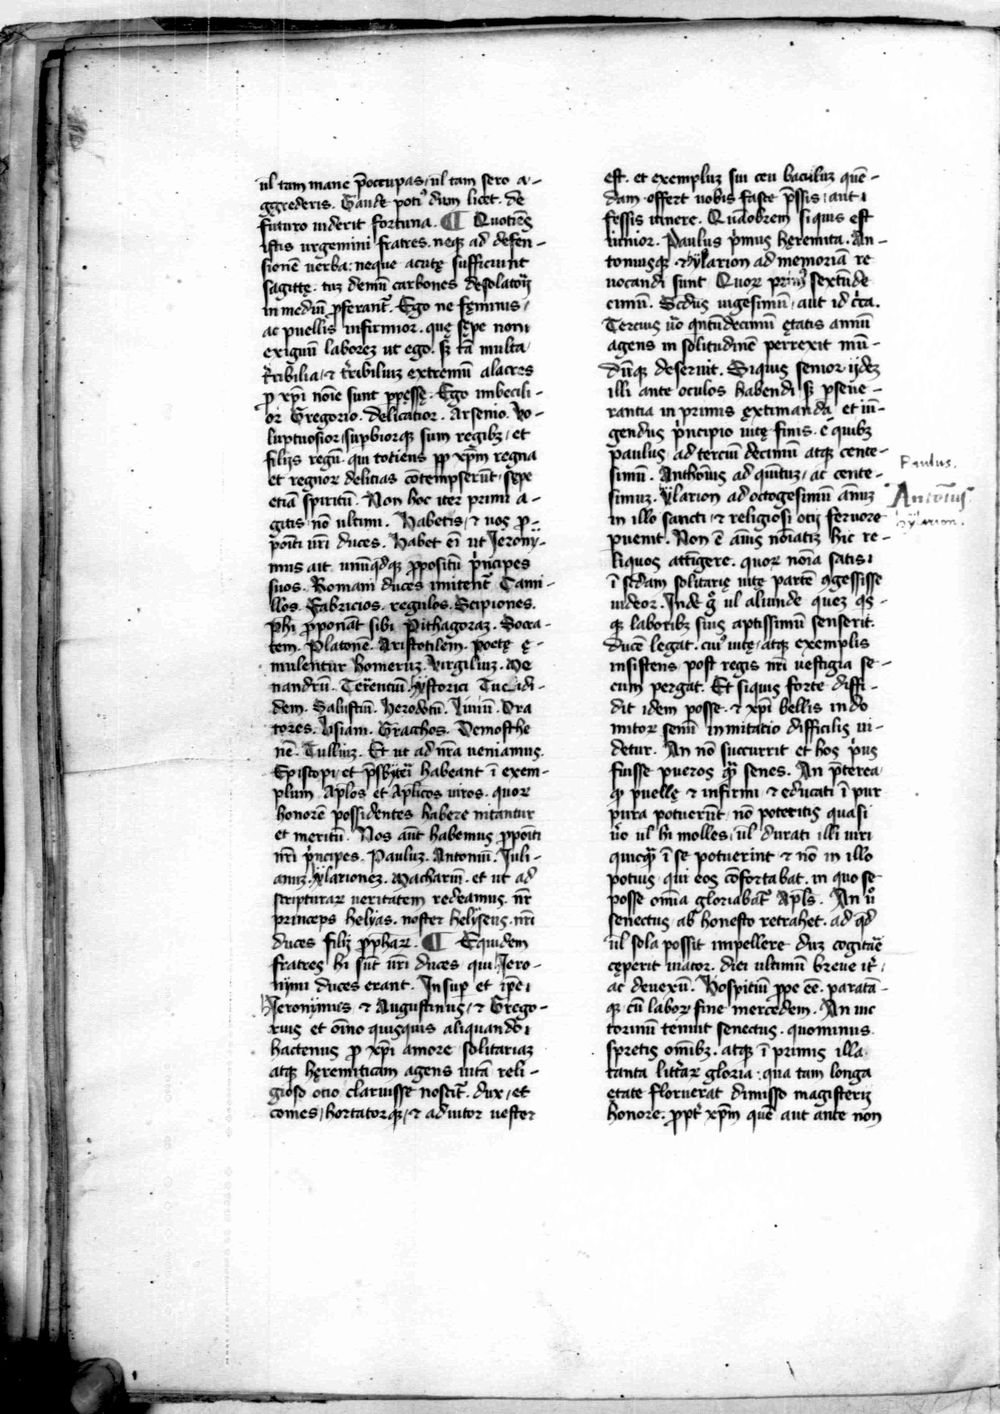 ul tam mane p̄occupas, ul tam sero a-
ggrederis. Gaude poti᾽ dum licet. de
futuro uiderit fortuna. ¶ Quotiēs
istis urgemini fratres. neqꝫ ad defen-
sionē uerba: neque acutę sufficiunt
sagittę. tuꝫ demū carbones desolatorij
in mediū p̱ferant᷑. Ego ne fęminis,
ac puellis infirmior. quę sępe non
exiguū laboreꝫ ut ego. sꝫ tā multa,
t᷑ribilia, ⁊ t᷑ribiliuꝫ extremū alacres
ꝓ xp̄i noīe sunt ꝑpęssę. Ego imbecili-
or Gregorio. delicatior. Arsenio. Vo-
luptuosior, suꝑbiorqꝫ sum regibꝫ, et
filijs regū. qui totiens ꝓp xp̄m regna
et regnoꝝ delicias cōtempserūt, sępe
etiā spiritū. Non hoc iter primi a-
gitis nō ultimi. Habetis, ⁊ uos ꝓ-
poīti ur̄i duces. Habet eī ut Jerony-
mus ait. unūqdqꝫ ꝓpositū pⁱncipes
suos. Romani duces imitent᷑ Cami-
llos. Fabricios. regulos. Scipiones.
Phī ꝓponāt sibi Pithagoraꝫ. Socra-
tem. Platonē. Aristotilem. poetę ę-
mulentur homeruꝫ. Virgiliuꝫ. Me
nandrū. Terentiū. hystorici Tucidi-
dem. Salustiū. herodotū. Liuiū. Ora
tores. Lisiam. Grachos. Demosthe
nē. Tulliuꝫ. Et ut ad nr̄a ueniamus.
Episcopi, et p̄sbyteri habeant ī exem-
plum Ap̄los et Ap̄licos uiros. quoꝝ
honorē possidentes habere nitantur
et meritū. Nos aūt habemus ꝓpoīti
nr̄i pⁱncipes. Pauluꝫ. Antoniū. Juli-
anuꝫ. hylarioneꝫ. Machariū. et ut ad
scripturaꝝ ueritatem redeamus. nr̄
princeps helyas. noster helyseus. nr̄i
duces filij ꝓphaꝝ. ¶ Equidem
fratres hi sūt ur̄i duces qui Jero-
nymi duces erant. Insuꝑ et ip̄e
Jeronymus ⁊ Augustinus, ⁊ Grego-
rius et oīno quisquis aliquando
hactenus ꝓ xp̄i amore solitariaꝫ
atqꝫ hęremiticam agens uitā reli-
gioso otio claruisse noscit᷑. dux, et
comes, hortatorqꝫ, ⁊ adiutor uester
est. et exempluꝫ sui ceu baculuꝫ quē-
dam offert uobis faste p̄ssis, aut
fessis itinere. Quāobrem si quis est
iunior. Paulus pⁱmus hęremita. An-
toniusqꝫ ⁊ ylarion ad memoriā re
uocandi sunt. Quoꝝ prim᾽ sextūde
cimū. Scd̄us uigesimū, aut id cⁱca.
Tercius ūo qⁱntūdecimū ętatis annū
agens in solitudinē perrexit mū-
dūqꝫ deseruit. Siquis senior ijdeꝫ
illi ante oculos habendi sꝫ ꝑseue-
rantia in primis extimanda et iū-
gendus pⁱncipio uitę finis. ē quibꝫ
paulus, ad terciū decimū atqꝫ cente-
simū. Anthoīus ad quītuꝫ, ac cente-
simuꝫ. ylarion ad octogesimū ānuꝫ
in illo sancti, ⁊ religiosi otij feruore
puenit. Non ē aīus noīatiꝫ hic re-
liquos attīgere. quoꝝ noīa satis
ī scd̄am solitarię uitę partē ꝯgessisse
uideor. Inde gͦ ul aliunde queꝫ qs-
qꝫ laboribꝫ suis aptissimū senserit.
ducē legat. cui᾽ uitę, atqꝫ exemplis
insistens, post regis nr̄i uestigia se-
cum pergat. Et siquis forte diffi-
dit idem posse. ⁊ xp̄i bellis in do
mitoꝝ senū inmitatio difficilis ui-
detur. An nō succurrit et hos pⁱus
fuisse pueros qꝫ senes. An p̄terea,
qꝫ puellę ⁊ infirmi, ⁊ educati ī pur
pura potuerūt, nō poteritis quasi
ūo ul hi molles, ul durati illi uiri
quicqꝫ ī se potuerint ⁊ nō in illo
potius, qui eos cōfortabat. in quo se
posse omīa gloriabat᷑ Apl̄s. An ūo
senectus ab honesto retrahet. ad qd̄
ul sola possit impellere duꝫ cogitāe
cęperit uiator. diei ultimū breue it᷑,
ac deuexū. Hospitiū ꝓpe eē. paratā-
qꝫ cū laboꝝ fine mercedem. An uic
torinū tenuit senectus. quominus
spretis omībꝫ. atqꝫ ī primis illa
tanta litt᷑aꝝ gloria, qua tam longa
etate floruerat dimisso magisterij
honore. ꝓpt᷑ xp̄m quē aut ante non
Paulus.
Antonius
hylarion.